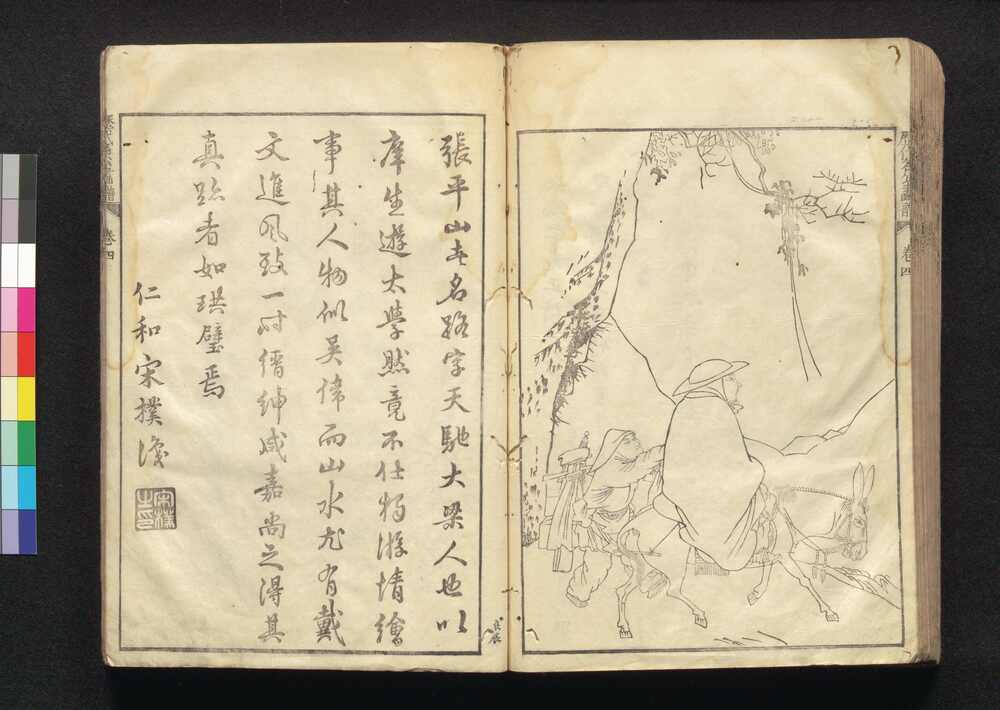 卷四
張平山名路字天馳大梁人也以
庠生遊大學然竟不仕獨游情繪
事其人物似吳偉而山水尤有戴
文進風致一時縉紳咸嘉尚之得其
真跡者如珙璧焉
仁和宋樸
卷四